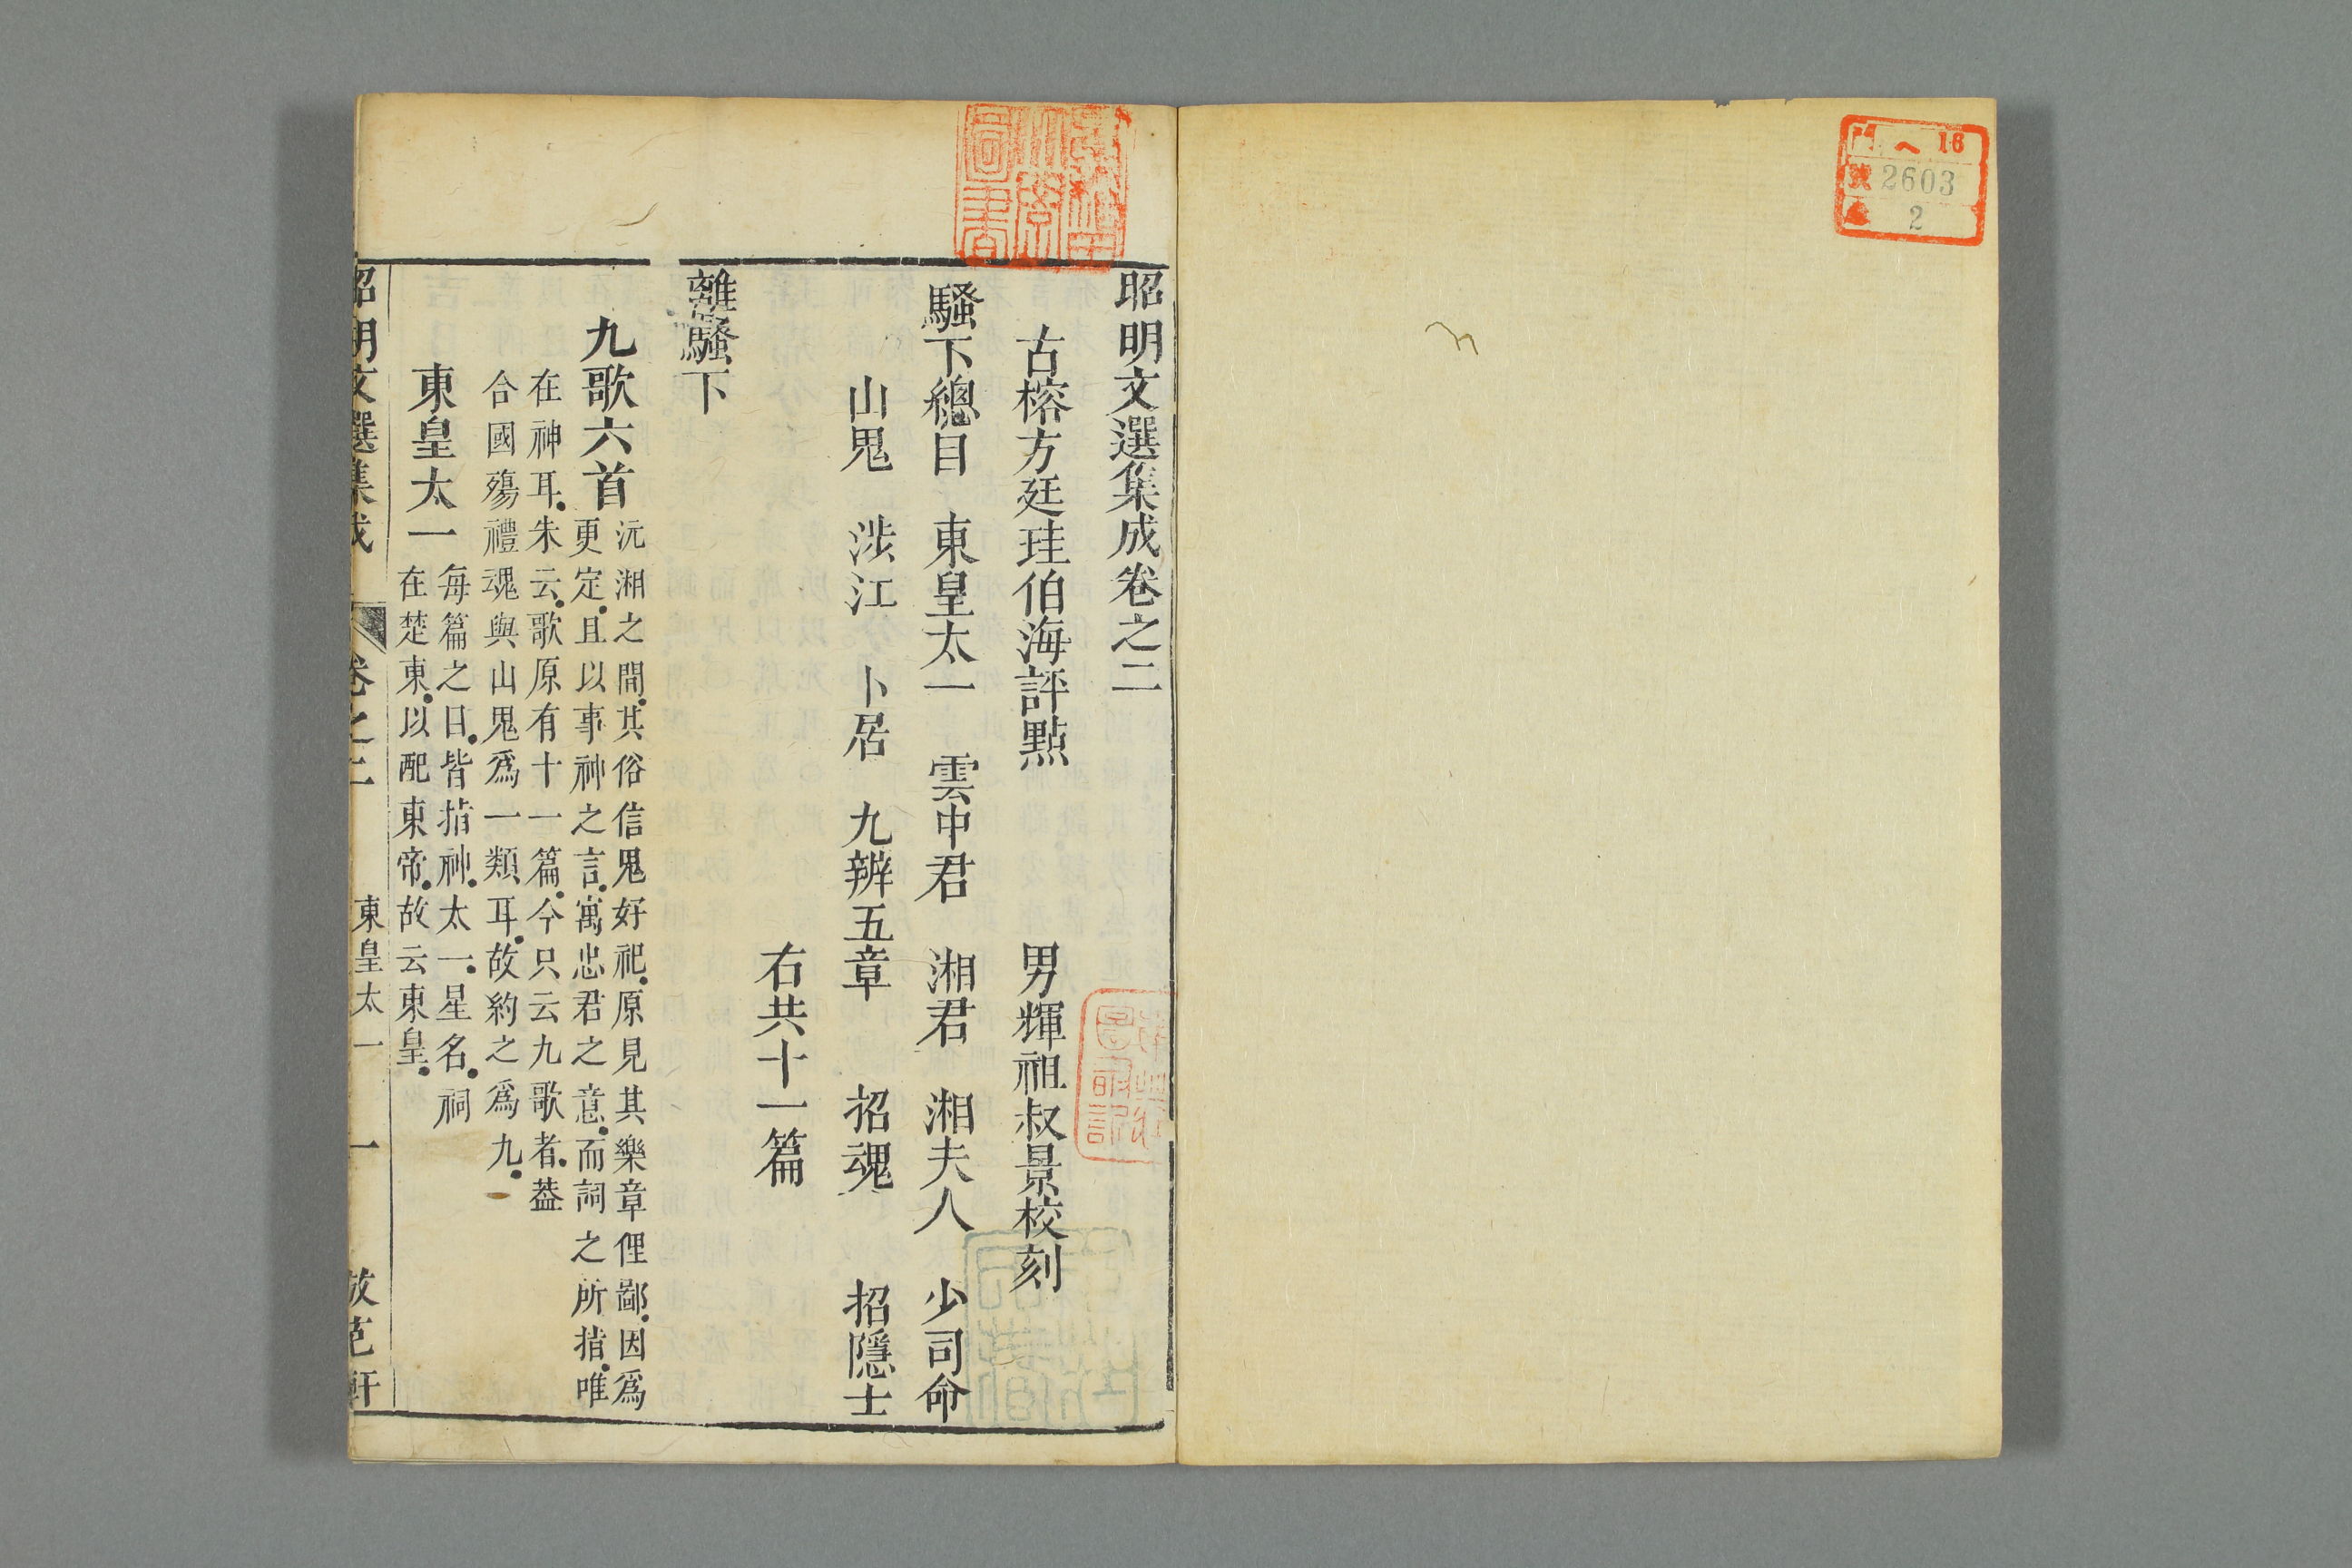 門 へ 16
號 2603
2
昭明文選集成卷之二
古榕方廷珪伯海評點 男輝祖叔景校刻
騷下總目 東皇太一 雲中君 湘君 湘夫人 少司命
山鬼 涉江 卜居 九辨五章 招魂 招隱士
右共十一篇
離騷下
九歌六首
沅湘之間其俗信鬼好祀原見其樂章俚鄙因爲
更定且以事神之言寓忠君之意而詞之所指唯
在神耳朱云歌原有十一篇今只云九歌者葢
合國殤禮魂與山鬼爲一類耳故約之爲九
東皇太一
每篇之日皆指神太一星名祠
在楚東以配東帝故云東皇
昭明文選集成 卷之二 東皇太一 一 倣范軒